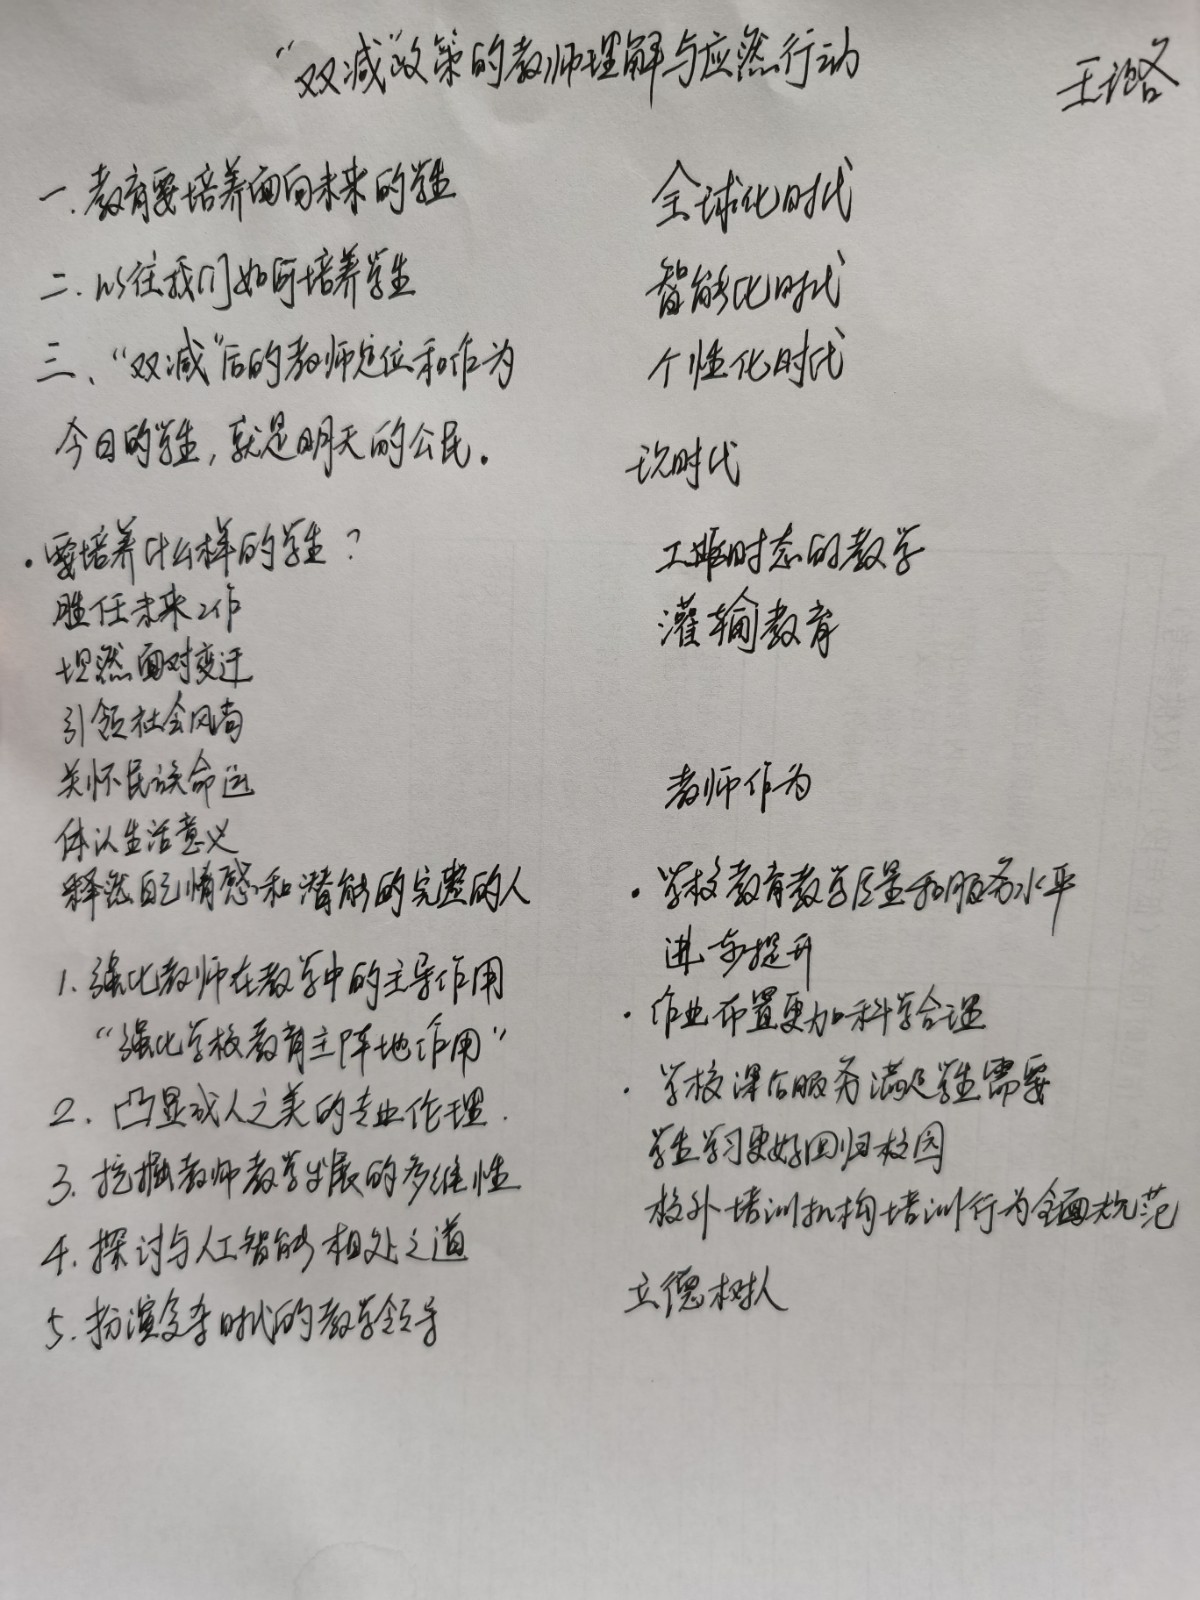 “双减”政策的教师理解与应然行动
一、教育要培养面向未来的学生
二、以往我们如何培养学生
三、“双减”后的教师定位和作为
今日的学生，就是明天的公民。
·要培养什么样的学生？
胜任未来工作
坦然面对变迁
引领社会风尚
关怀民族命运
体认生活意义
释然自己情感和潜能的完整的人
1.强化教师在教学中的主导作用
“强化学校教育主阵地作用”
2.凸显成人之美的专业伦理.
3.挖掘教师教学发展的多维性
4.探讨与人工智能相处之道
5.扮演复杂时代的教学领导
全球化时代
智能化时代
个性化时代
时代
工业时态的教学
灌输教育
教师作为
·学校教育教学质量和服务水平
进步提升
·作业布置更加科学合理
·学校课后服务满足学生需要
学生学习更好回归校园
校外培训机构培训行为全面规范
立德树人